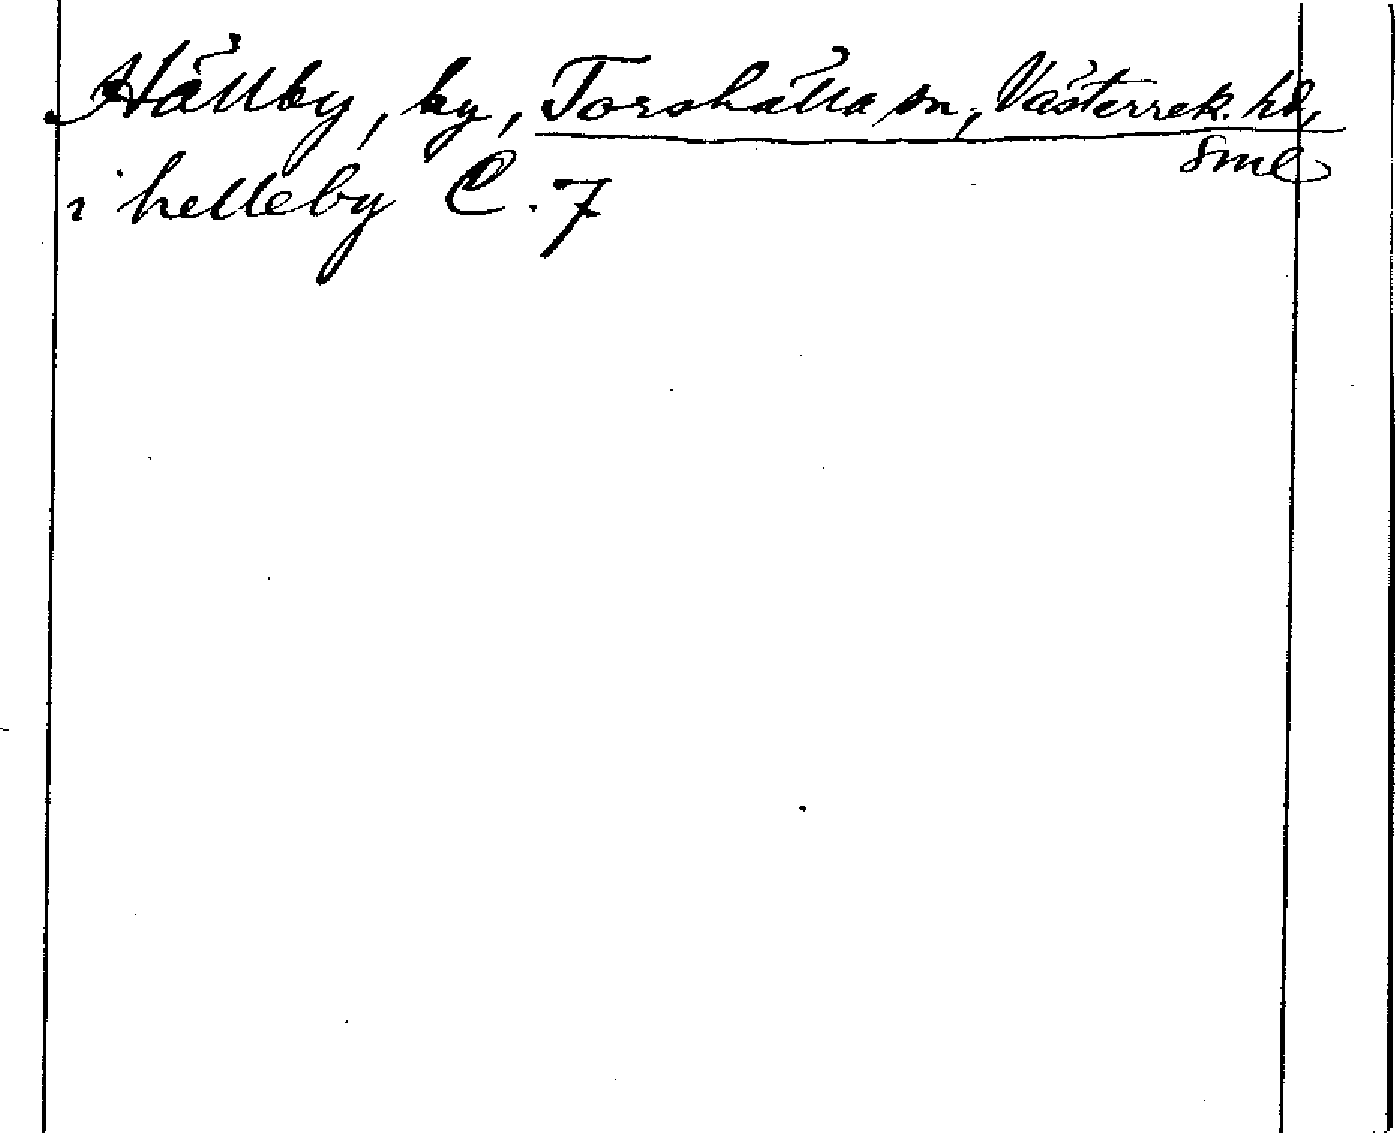 Hällby, by, Torshälla sn, Västerrek. hd,
Sml
i helleby C. 7